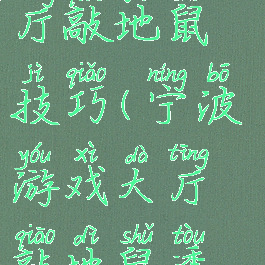 厅敲地鼠
jì qiǎo níng bō
技巧(宁波
yóu xì dà tīng
游戏大厅
qiāo dì shǔ tòu
敲地鼠透